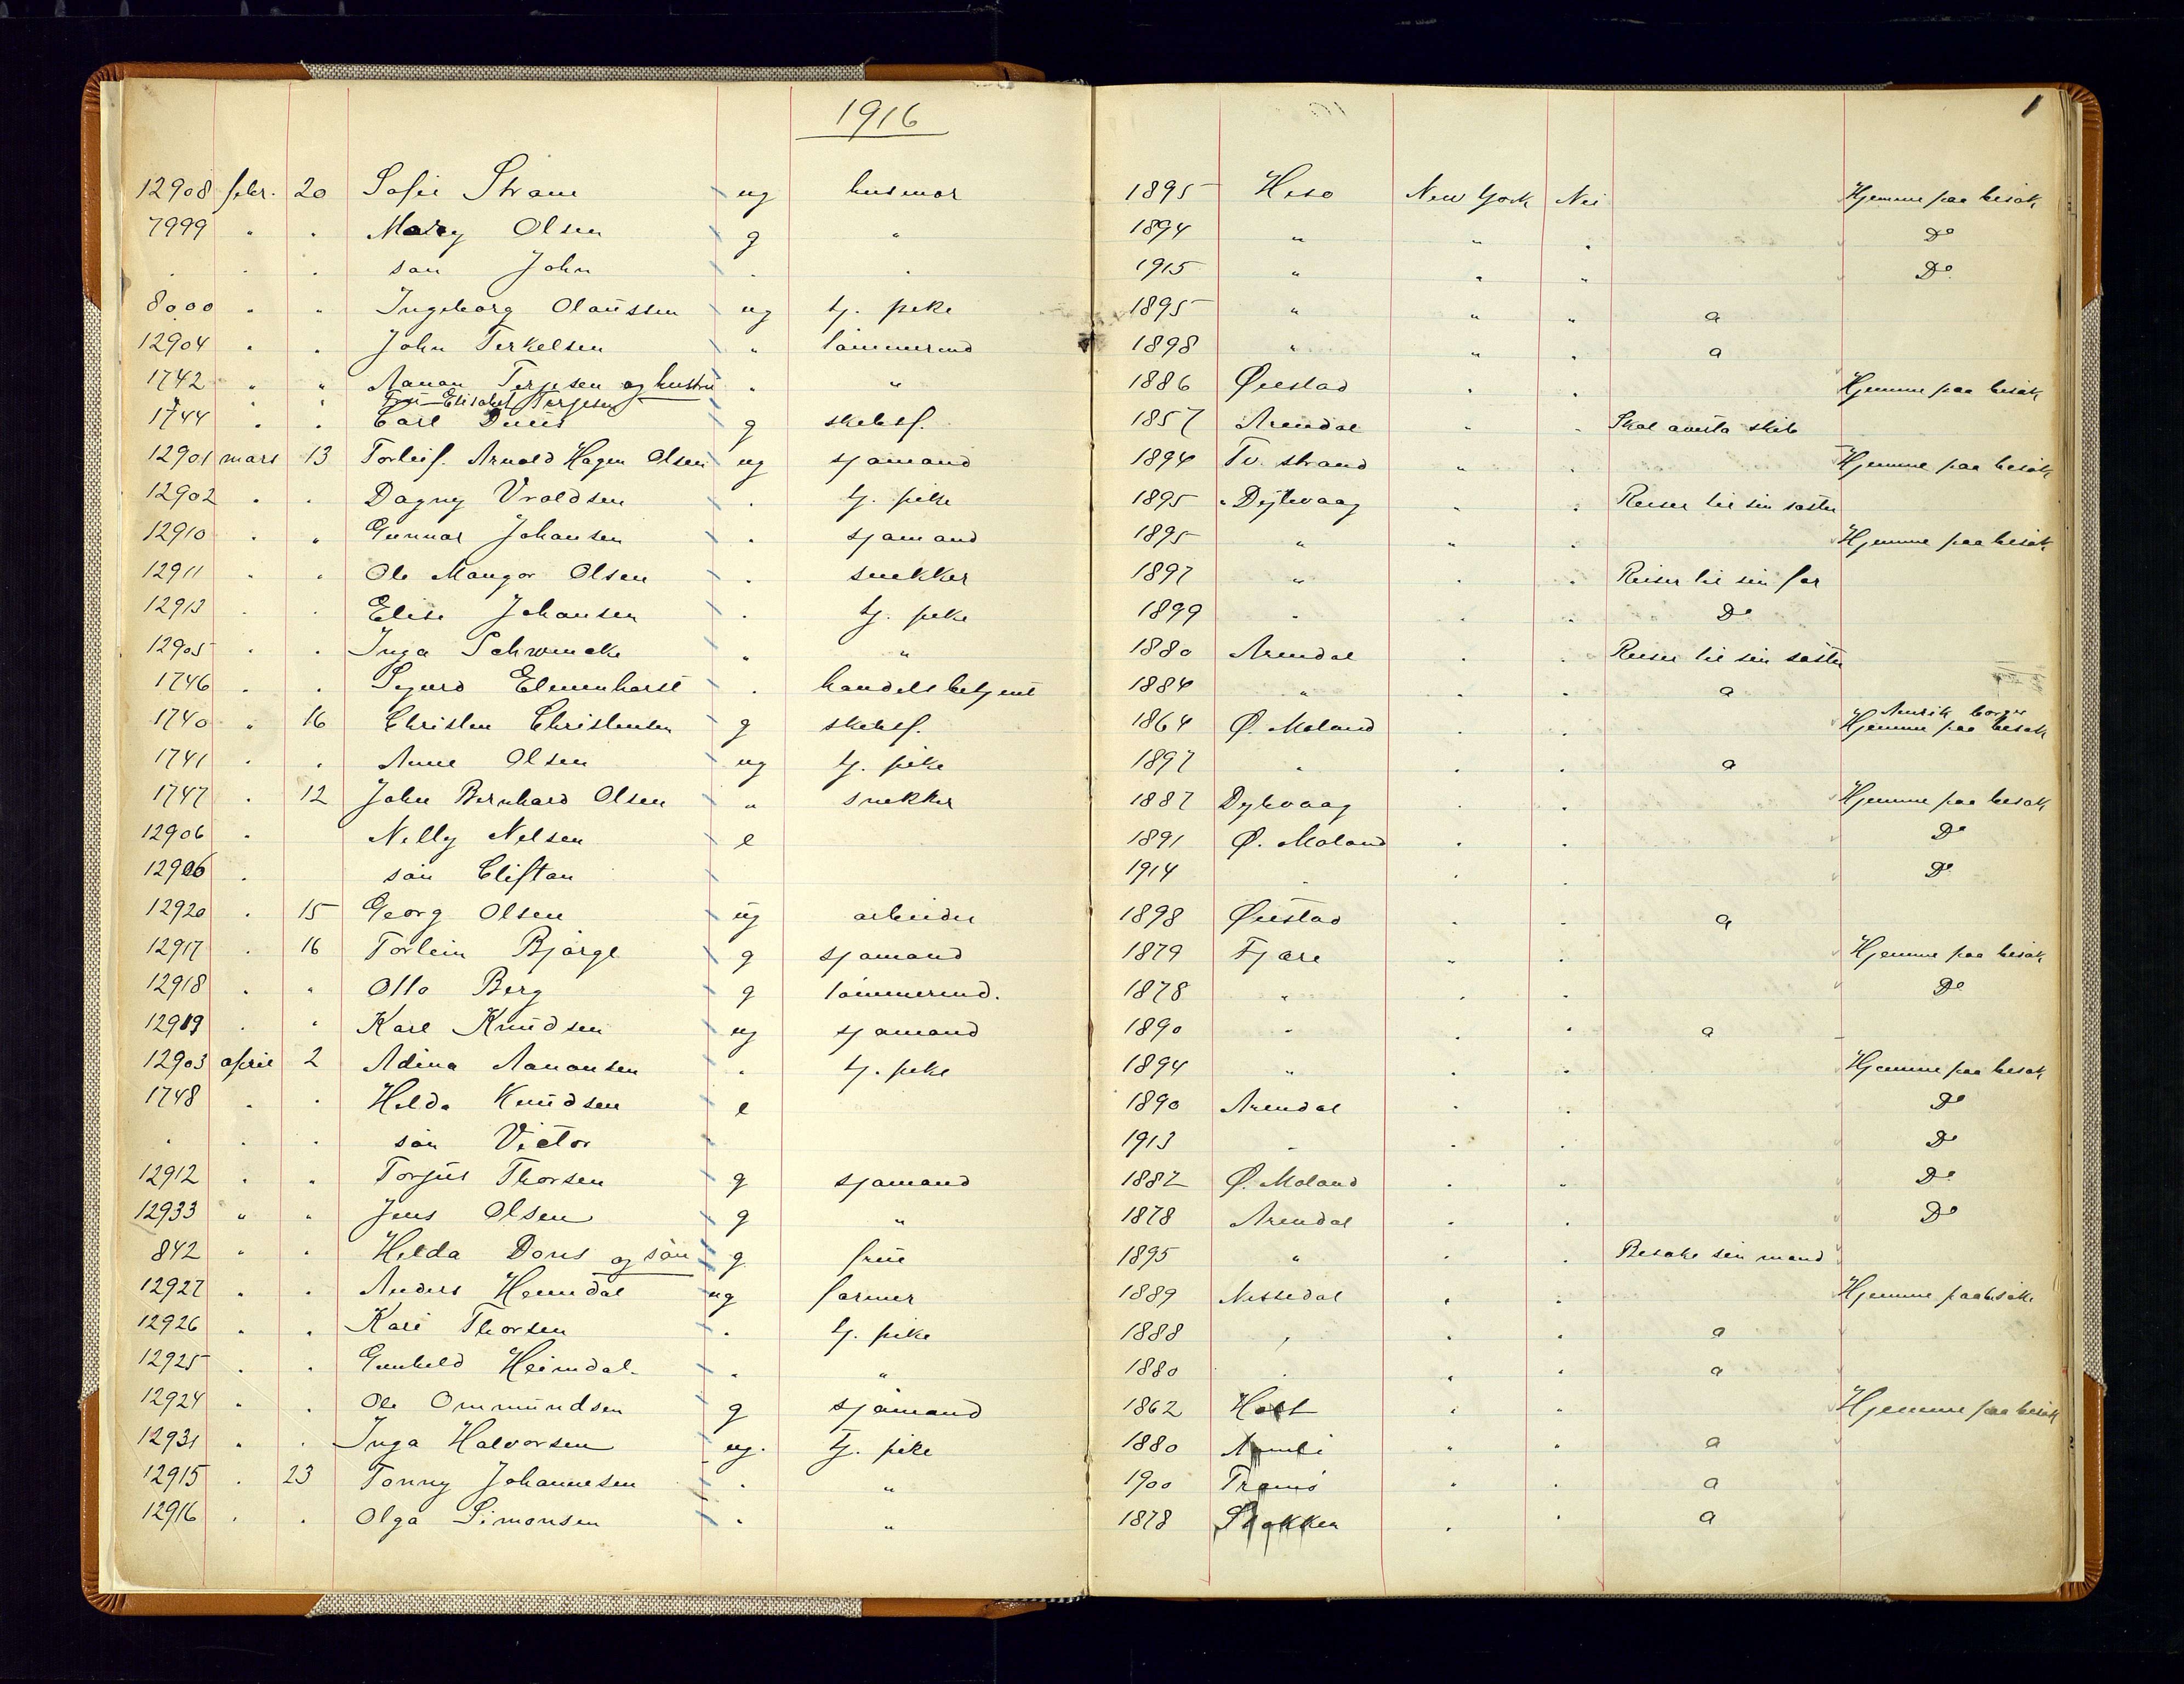 1916
1
12908 febr. 20 Sofie Strøm ug husmor 1895 Hisø New York Nei Hjemme paa besøk
7999 " " Mary Olsen g " 1894 " " " Do
" " " søn John " " 1915 " " " Do
8000 " " Ingeborg Olaussen ug tj. pike 1895 " " " a
12904 " " John Terkelsen " tømmermd 1898 " " " a
1742 " " Aanon Terjesen og hustru " " 1886 Øiestad " " Hjemme paa besøk
" " Fru Elisabet Terjesen
1744 " " Carl Duus g skibsf. 1857 Arendal " " Skal avista skib
12901 mars 13 Torleif. Arnold Hagen Olsen ug sjømand 1894 Tv. strand " " Hjemme paa besøk
12902 " " Dagny Vraldsen " tj. pike 1895 " Dybvaag " " Reiser til sin søster
12910 " " Gunnar Johansen " sjømand 1895 " " " Hjemme paa besøk
12911 " " Ole Mangor Olsen " snekker 1897 " " " Reiser til sin far
12913 " " Elise Johansen " tj. pike 1899 " " " Do
12905 " " Inga Schwencke " " 1880 Arendal " " Reiser til sin søster
1746 " " Sigurd Elmenhorst " handelsbetjent 1884 " " " a
Amrik borger
1740 " 16 Christen Christensen g skibsf. 1864 Ø. Moland " " Hjemme paa besøk
1741 " " Anne Olsen ug tj. pike 1897 " " " a
1747 " 12 John Bernhard Olsen " snekker 1887 Dybvaag " " Hjemme paa besøk
12906 " Nelly Nelsen e 1891 Ø. Moland " " Do
12906 " søn Cliftan 1914 " " " Do
12920 " 15 Georg Olsen ug arbeider 1898 Øiestad " " a
12917 " 16 Torlein Bjørge g sjømand 1879 Fjære " " Hjemme paa besøk
12918 " " Otto Berg g tømmermd. 1878 " " " Do
12919 " " Karl Knudsen ug sjømand 1890 " " " a
12903 april 2 Adina Aanonsen " tj. pike 1894 " " " Hjemme paa besøk
1748 " " Hilda Knudsen e 1890 Arendal " " Do
" " " søn Victor 1913 " " " Do
12912 " " Torjus Thorsen g sjømand 1882 Ø. Moland " " Do
12933 " " Jens Olsen g " 1878 Arendal " " Do
842 " " Hilda Dons og søn g frue 1895 " " " Besøke sin mand
12927 " " Anders Heimdal ug farmer 1889 Nissedal " " Hjemme paa besøk
12926 " " Kari Thorsen " tj. pike 1888 " " " a
12925 " " Gunhild Heimdal " " 1880 " " " a
12924 " " Ole Ommundsen g sjømand 1862 Holt " " Hjemme paa besøk
12931 " " Inga Halvorsen ug. tj. pike 1880 Aamli " " a
12915 " 23 Tonny Johannesen " " 1900 Tromø " " a
12916 " " Olga Simonsen " " 1878 Stokken " " a